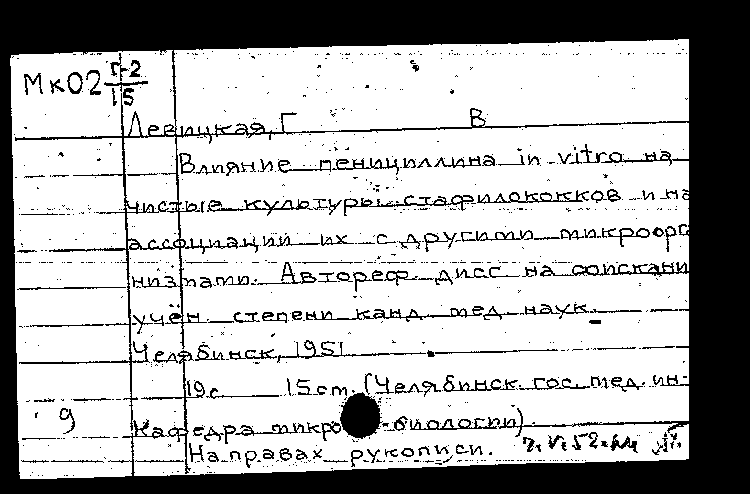 МкО2 Г-2
15
Левицкая, Г В
Влияние пенициллина in vitro на
чистые культуры стафилококков и на
ассоциации их с другими микроорга
низмами. Автореф. дисс на соискани
учён. степени канд мед наук.
Челябинск, 1951
19с. 15ст. (Челябинск. гос. мед. ин-
9 Кафедра микро -биологии).
На правах рукописи.